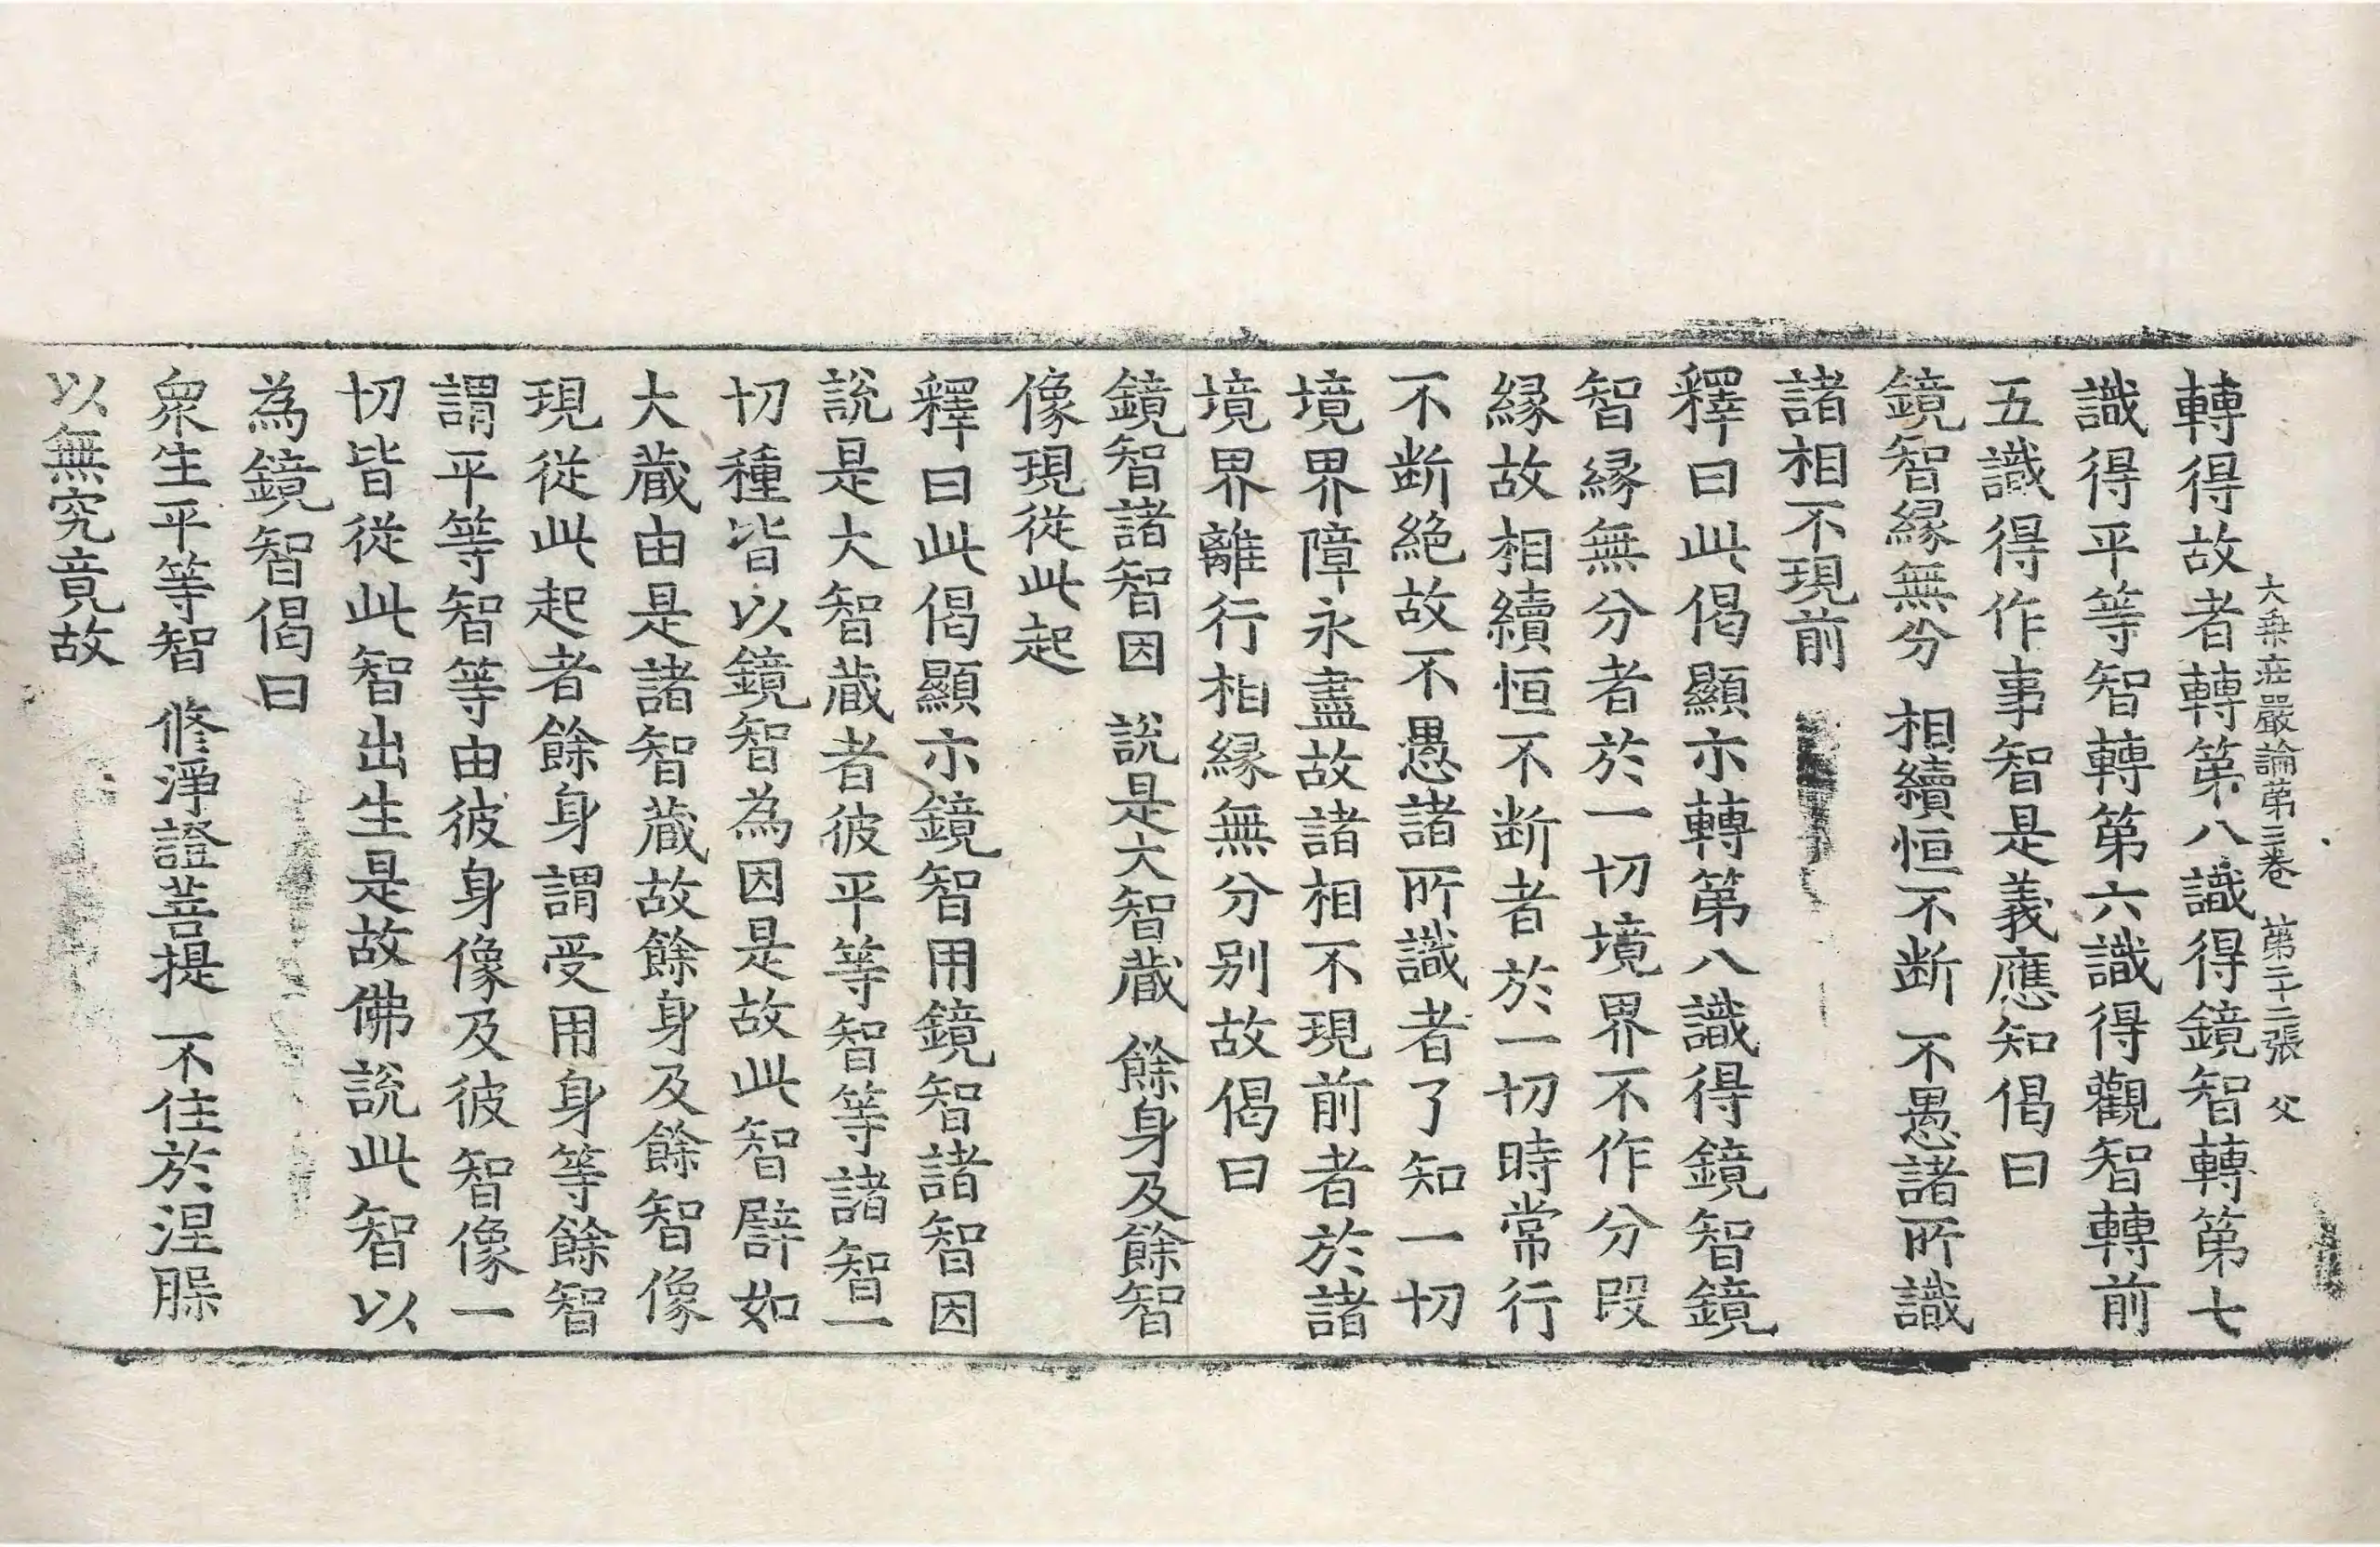 大乘莊嚴論第三卷 第二十二張 父
轉得故者轉第八識得鏡智轉第七
識得平等智轉第六識得觀智轉前
五識得作事智是義應知偈曰
鏡智緣無分 相續恒不断 不愚諸所識
諸相不現前
釋曰此偈顯示轉第八識得鏡智鏡
智緣無分者於一切境界不作分段
緣故相續恒不断者於一切時常行
不断絶故不愚諸所識者了知一切
境界障永盡故諸相不現前者於諸
境界離行相緣無分别故偈曰
鏡智諸智因 說是大智藏 餘身及餘智
像現從此起
釋曰此偈顯示鏡智用鏡智諸智因
說是大智藏者彼平等智等諸智一
切種皆以鏡智為因是故此智譬如
大藏由是諸智藏故餘身及餘智像
現從此起者餘身謂受用身等餘智
謂平等智等由彼身像及彼智像一
切皆從此智出生是故佛說此智以
為鏡智偈曰
衆生平等智 修淨證菩提 不住於涅槃
以無究竟故